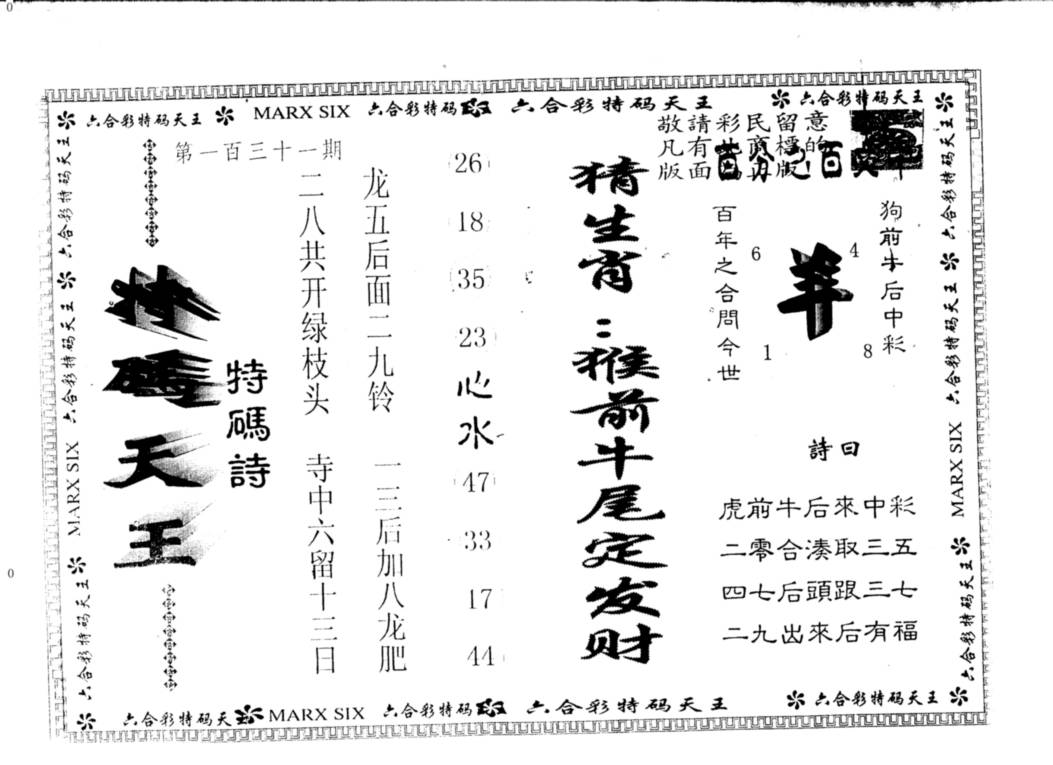 六合彩特码天王 MARX SIX 六合彩特码 六合彩特码天王 六合彩特码天王
敬請彩民留意
凡有
版面
第一百三十一期
特碼天王
特碼詩
龙五后面二九铃
二八共开绿枝头
一三后加八龙肥
寺中六留十三日
26
18
35
23
心水
47
33
17
44
猜生肖：猴前牛尾定发财
狗前牛后中彩
羊
6
4
1
8
百年之合問今世
詩曰
虎前牛后來中彩
二零合湊取三五
四七后頭跟三七
二九出來后有福
六合彩特码天王 六合彩特码天王 MARX SIX 六合彩特码天王
六合彩特码天王 六合彩特码天王 MARX SIX 六合彩特码天王
六合彩特码天王 MARX SIX 六合彩特码 六合彩特码天王 六合彩特码天王